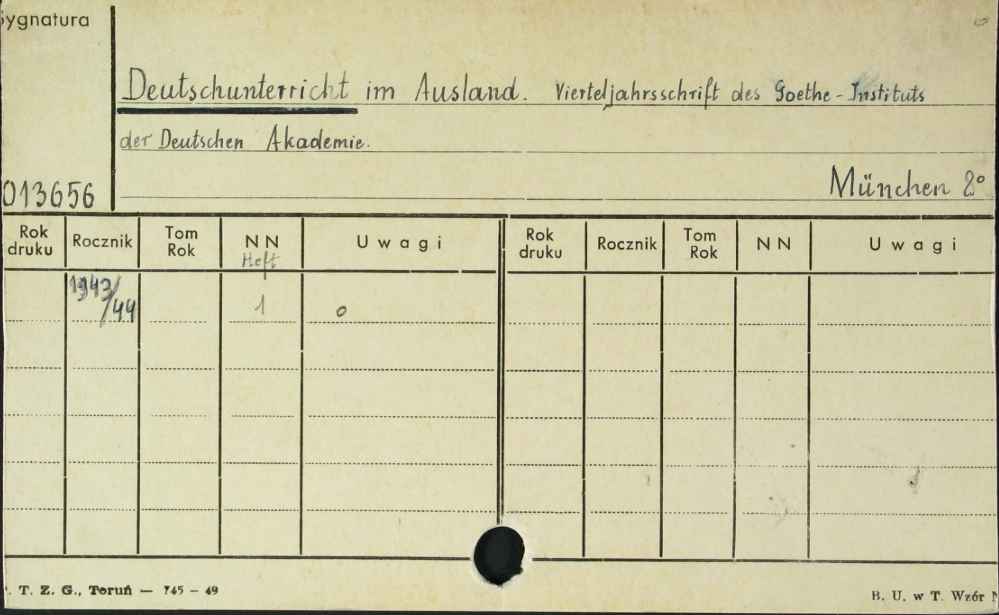 Sygnatura
Deutschunterricht im Ausland. Vierteljahrsschrift des Goethe-Instituts
der Deutschen Akademie.
013656
München 8°
Rok druku Rocznik Tom Rok NN Heft Uwagi Rok druku Rocznik Tom Rok NN Uwagi
1943/44 1 o
T. Z. G., Toruń — 745 - 49
B. U. w T. Wzór